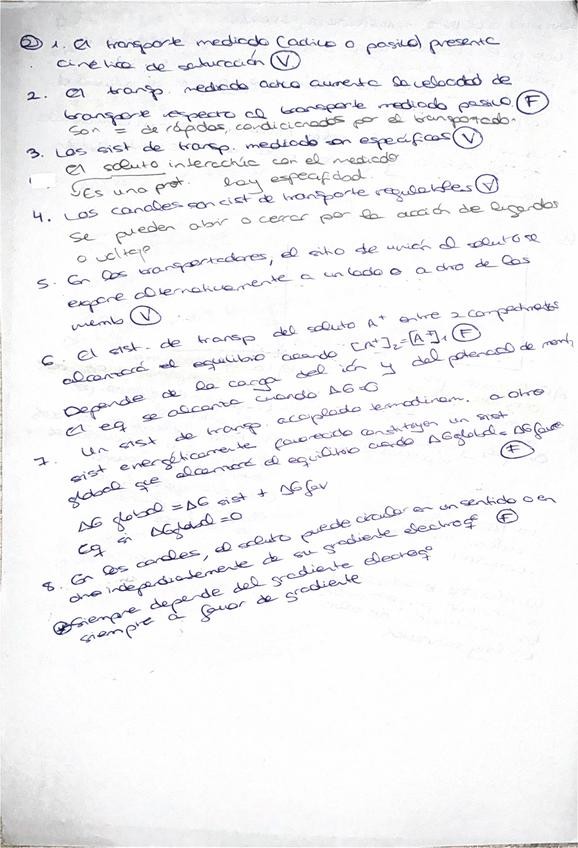 ② 1. El transporte mediado (activo o pasivo) presenta
cinética de saturación (V)
2. El transp. mediado activo aumenta la velocidad de
transporte respecto al transporte mediado pasivo (F)
Son = de rápidos, condicionados por el transportado.
3. Los sist de transp. mediado son específicos (V)
El soluto interactúa con el mediado
↳ Es una prot. hay especifidad.
4. Los canales son sist de transporte regulables (V)
Se pueden abrir o cerrar por la acción de ligandos
o voltaje
5. En los transportadores, el sitio de unión al soluto se
expone alternativamente a un lado o a otro de las
memb (V)
6. El sist. de transp del soluto A⁺ entre 2 compartimentos
alcanzará el equilibrio cuando [A⁺]₂=[A⁺]₁ (F)
Depende de la carga del ión y del potencial de memb,
el eq se alcanza cuando ΔG=0
7. Un sist de transp. acoplado termodinam. a otro
sist energéticamente favorecido constituyen un sist
global que alcanzará el equilibrio cuando ΔGglobal = ΔGfavor
(F)
ΔG global = ΔG sist + ΔG fav
Eq si ΔGglobal = 0
8. En los canales, el soluto puede circular en un sentido o en
otro independientemente de su gradiente electroqº (F)
Siempre depende del gradiente electroqº
siempre a favor de gradiente